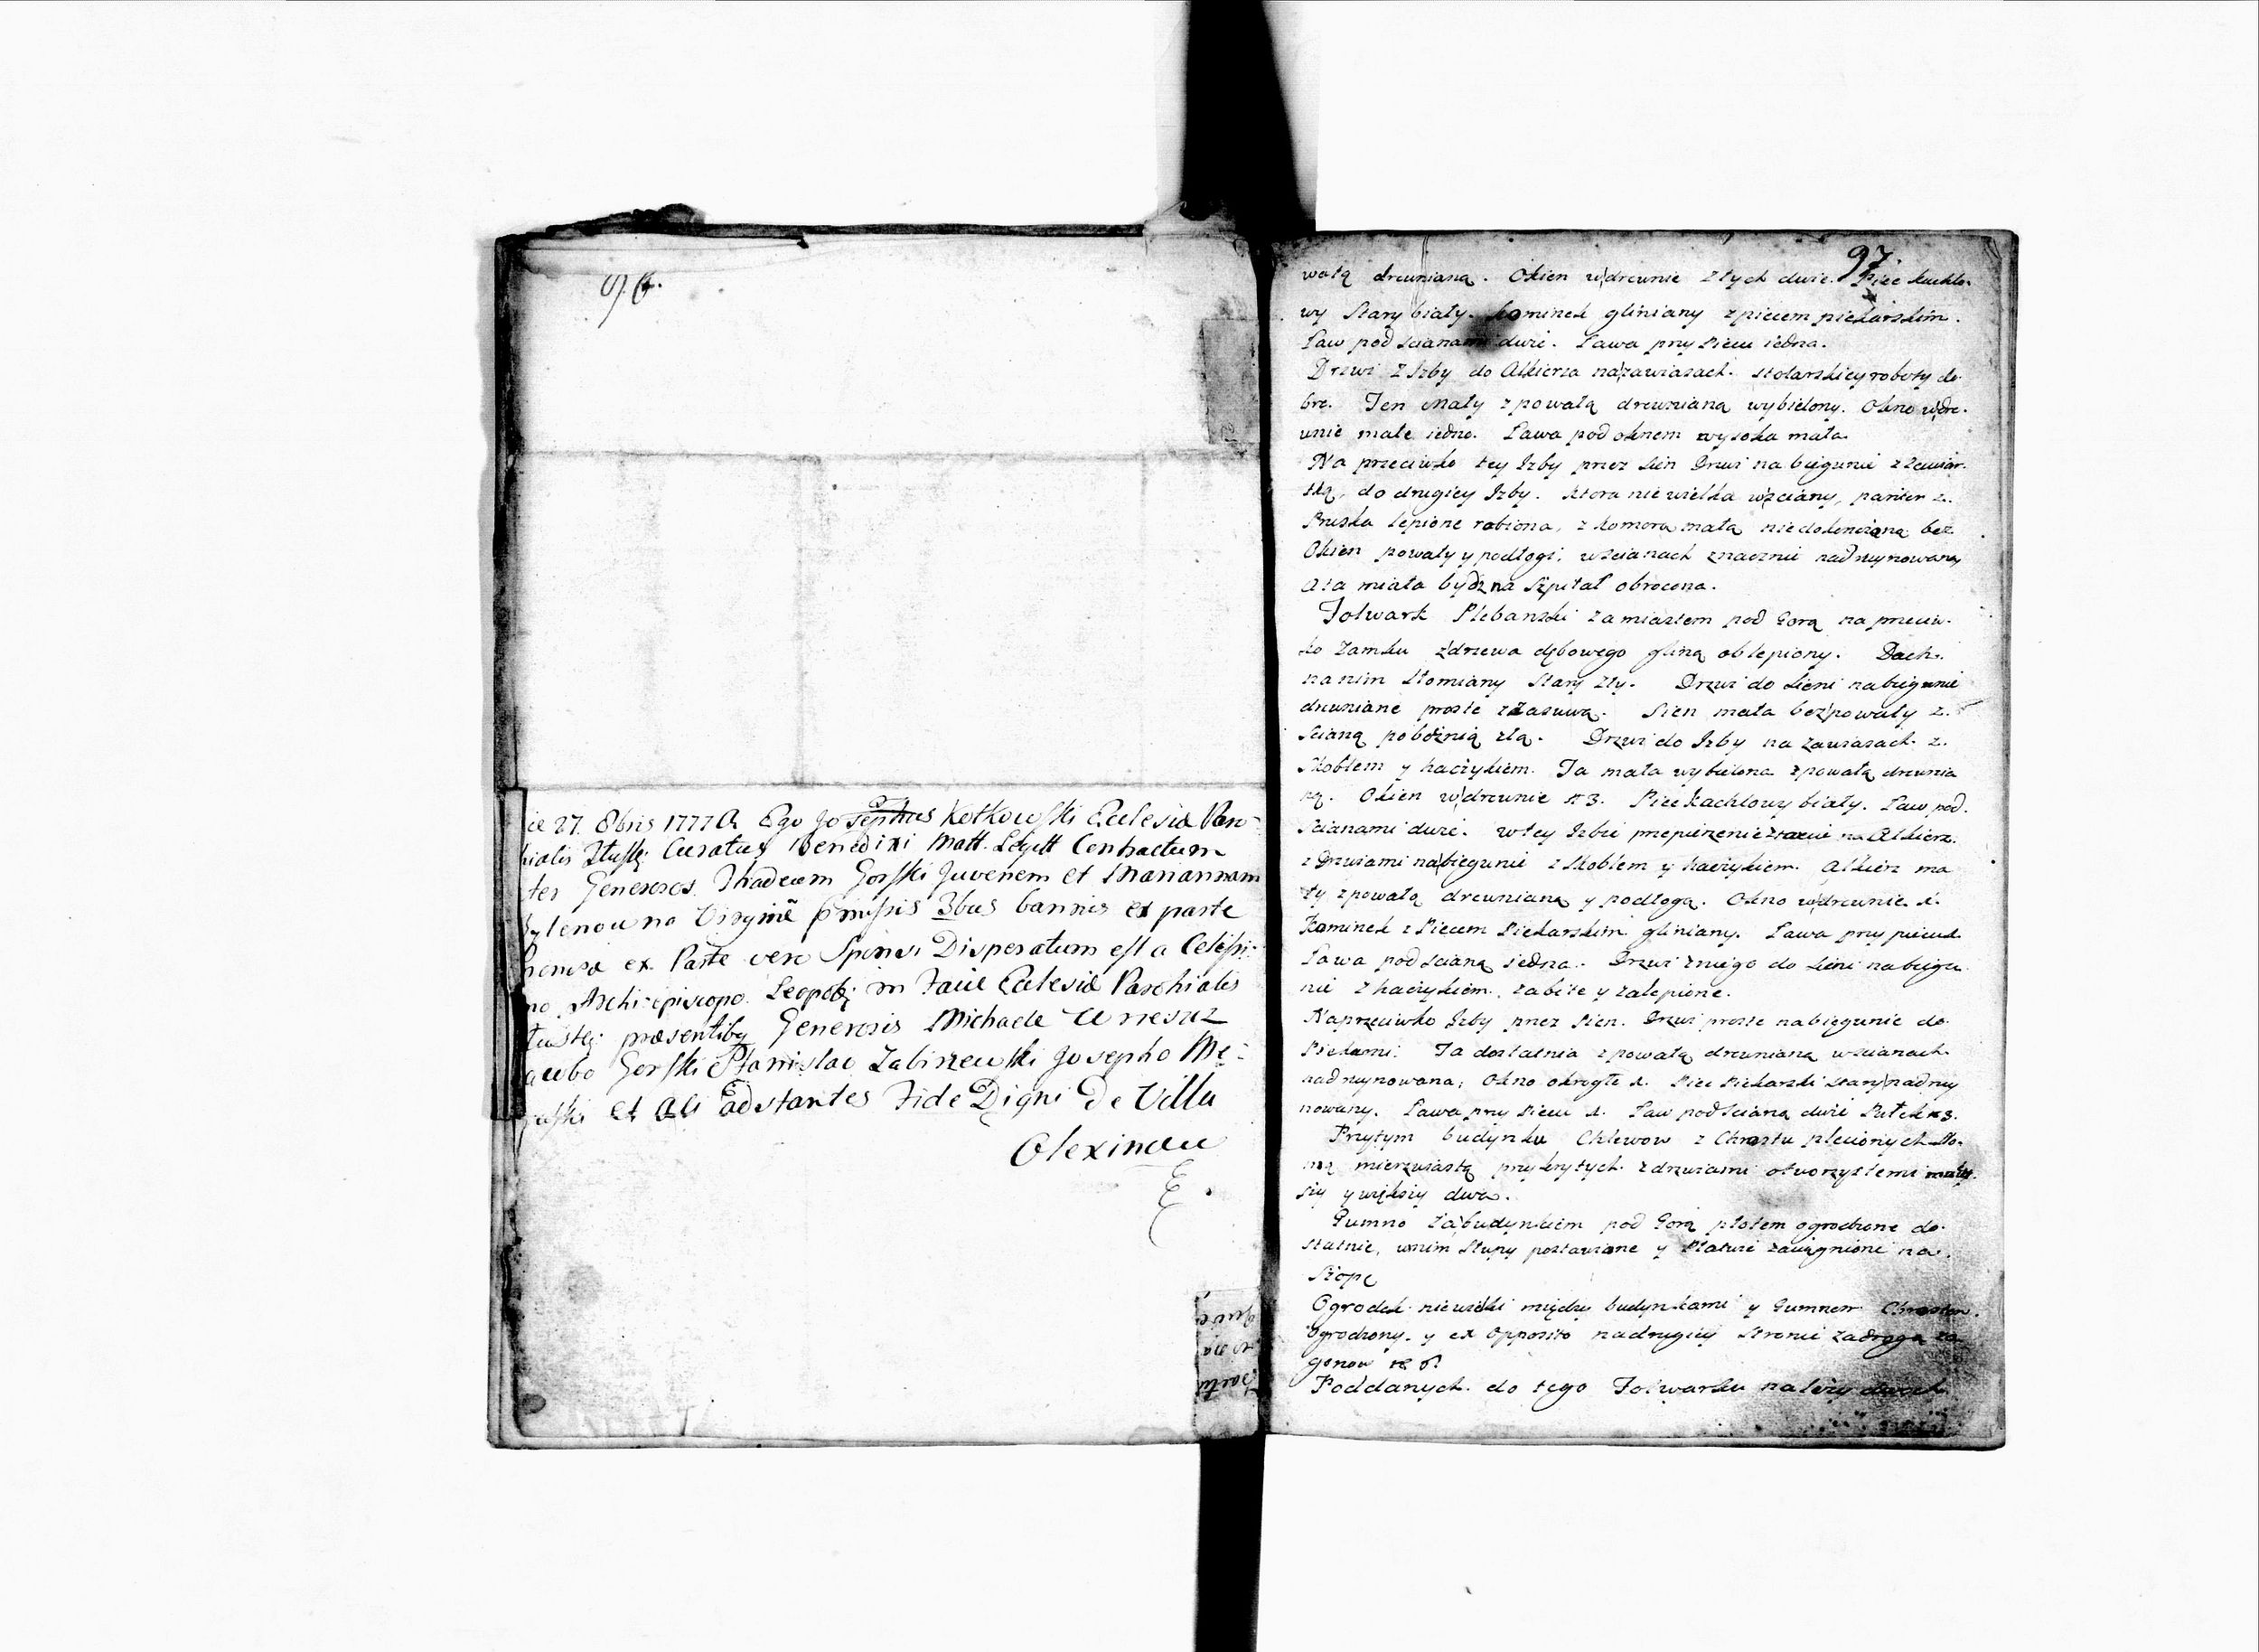 96.
ie 27. 8bris 1777 A Ego Josephus Kotkowski Ecclesiæ Paro-
hialis Curatus Benedixi Matt. Legitt Contractum
ter Generosos. Thadeum Gorski Juvenem et Mariannam
Virginē pmissis 3bus bannis ex parte
ex Parte vero Sponsi Dispesatum est a Celissi-
mo Archi-episcopo. Leopol in Facie Eclesiæ Parohialis
præsentibq Generosis Michaele
acubo Gorski Stanislao Zabiszewski Josepho Me-
et Ali adstantes Fide Digni De Villa
Olexincu
97.
wałą drewnianą. Okien w drewnie złych dwie. Piec kachlo-
wy Stary biały. Kominek gliniany z piecem piekarskim.
Ław pod scianami dwie. Ława przy piecu iedna.
Drzwi z Izby do Alkierza na zawiasach. stolarskiey roboty do-
bre. Ten mały z powałą drewnianą wybielony. Okno w dre-
wnie małe iedno. Ława pod oknem wysoka mała.
Na przeciwko tey Izby przez sien Drzwi na biegunie
do drugiey Izby. ktora nie wielka w sciany, z
Pruska lepione robiona, z komorą małą niedokonczoną bez
Okien powały y podłogi, w scianach znacznie nadruynowana
A ta miała bydz na Szpital obrocona.
Folwark Plebanski za miastem pod Gorą na przeciw-
ko Zamku z drzewa dębowego gliną oblepiony. Dach
na nim słomiany Stary zły. Drzwi do sieni na biegunie
drewniane proste z zasuwą. Sien mała bez powały z
Scianą pobożnią złą. Drzwi do Izby na zawiasach z
Skoblem y haczykiem. Ta mała wybielona z powałą drewnia
ną. Okien w drewnie n 3. Piec kachlowy biały. Ław pod
scianami dwie. w tey Izbie przepierzenie na Alkierz
z Drzwiami na biegunie z skoblem y haczykiem. Alkierz ma
ły z powałą drewnianą y podłogą. Okno w drewnie 1.
Kominek z Piecem Piekarskim gliniany. Ława przy piecu
Ława pod scianą iedna. Drzwi z niego do sieni na biegu
nie z haczykiem, zabite y zalepione.
Naprzeciwko Izby przez sien. Drzwi proste na biegunie do
Piekarni. Ta dostatnia z powałą drewnianą w scianach
nadruynowana; Okno okrągłe 1. Piec Piekarski stary nadruy
nowany. Ława przy piecu 1. Ław pod scianą dwie Półek n 3.
Przytym budynku Chlewow z Chrostu plecionych sło-
mą mierzwiastą przykrytych z drzwiami otworzystemi
szy y większy dwa.
Gumno za budynkiem pod Gorą płotem ogrodzone do-
statnie, w nim Słupy postawione y Płatwie zaciągnione na
Szopę
Ogrodek niewielki między budynkami y Gumnem Chrostem
ogrodzony. y ex opposito na drugiey stronie za drogą za-
gonow n 6.
Poddanych do tego Folwarku należy dwoch